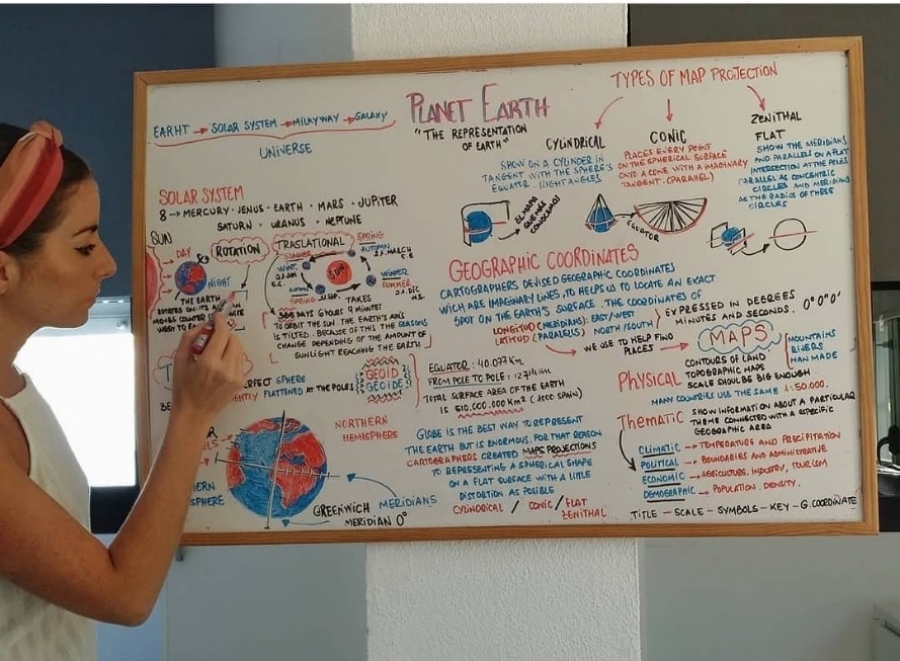 PLANET EARTH
"THE REPRESENTATION
OF EARTH"
EARHT → SOLAR SYSTEM → MILKYWAY → GALAXY
UNIVERSE
SOLAR SYSTEM
8 → MERCURY · JENUS · EARTH · MARS · JUPITER
SATURN · URANUS · NEPTUNE
SUN
DAY
NIGHT
ROTATION
THE EARTH
TRASLATIONAL
SPRING
SUMMER
AUTUMN
21.MARCH
WINTER
SUMMER
21.DIC
AUTUMN
SPRING
SUN
TAKES
DAYS 6 HOURS 9 MINUTES
TO ORBIT THE SUN. THE EARTH'S AXIS
IS TILTED. BECAUSE OF THIS THE SEASONS
CHANGE DEPENDING OF THE AMOUNT OF
SUNLIGHT REACHING THE EARTH.
SPHERE
FLATTENED AT THE POLES
GEOID
GEOIDE
EQUATOR: 40.077 Km
FROM POLE TO POLE:
TOTAL SURFACE AREA OF THE EARTH
IS 510.000.000 Km² (1000 SPAIN)
NORTHERN
HEMISPHERE
MERIDIANS
GREENWICH
MERIDIAN 0°
GLOBE IS THE BEST WAY TO REPRESENT
THE EARTH BUT IS ENORMOUS. FOR THAT REASON
CARTOGRAPHERS CREATED MAPS PROJECTIONS
TO REPRESENTING A SPHERICAL SHAPE
ON A FLAT SURFACE WITH A LITTLE
DISTORTION AS POSIBLE
CYLINDRICAL / CONIC / FLAT
ZENITHAL
TYPES OF MAP PROJECTION
CYLINDRICAL
SHOW ON A CYLINDER IN
TANGENT WITH THE SPHERE'S
EQUATOR. (RIGHT ANGLES)
EL MAPA
QUE MAS
CONOCEMOS
CONIC
PLACES EVERY POINT
ON THE SPHERICAL SURFACE
ONTO A CONE WITH A IMAGINARY
TANGENT. (PARALEL)
EQUATOR
ZENITHAL
FLAT
SHOW THE MERIDIANS
AND PARALLELS ON A FLAT
INTERSECTION AT THE POLES
PARALLELS AS CONCENTRIC
CIRCLES AND MERIDIANS
AS THE RADIUS OF THESE
CIRCLES
GEOGRAPHIC COORDINATES
CARTOGRAPHERS DEVISED GEOGRAPHIC COORDINATES
WICH ARE IMAGINARY LINES, TO HELP US TO LOCATE AN EXACT
SPOT ON THE EARTH'S SURFACE. THE COORDINATES OF
LONGITUD (MERIDIANS): EAST/WEST
LATITUD (PARALLELS) NORTH/SOUTH
EXPRESSED IN DEGREES
MINUTES AND SECONDS. 0°0'0"
WE USE TO HELP FIND
PLACES
MAPS
PHYSICAL
CONTOURS OF LAND
TOPOGRAPHIC MAPS
SCALE SHOULD BE BIG ENOUGH
MANY COUNTRIES USE THE SAME 1:50.000.
MOUNTAINS
RIVERS
MAN MADE
THEMATIC
SHOW INFORMATION ABOUT A PARTICULAR
THEME CONNECTED WITH A ESPECIFIC
GEOGRAPHIC AREA
CLIMATIC → TEMPERATURE AND PRECIPITATION
POLITICAL → BOUNDARIES AND ADMINISTRATIVE
ECONOMIC → AGRICULTURE, INDUSTRY, TOURISM
DEMOGRAPHIC → POPULATION DENSITY.
TITLE — SCALE — SYMBOLS — KEY — G.COORDINATE